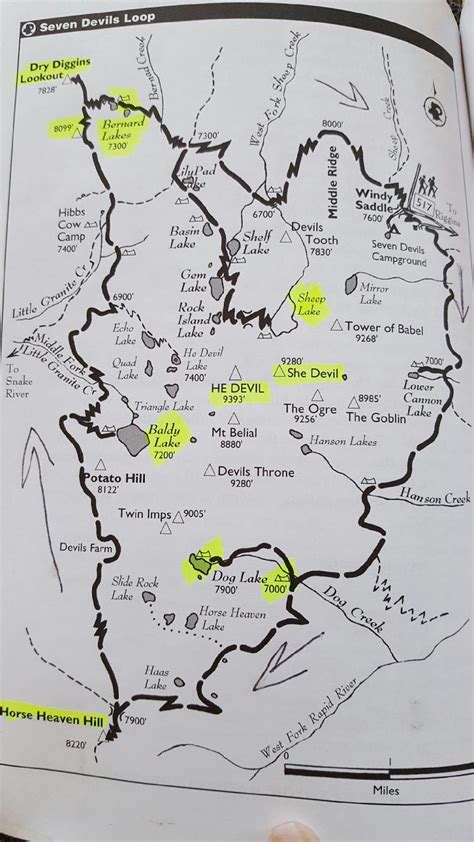 Seven Devils Loop
Dry Diggins
Lookout
7828'
8099'
Bernard
Lakes
7300'
Bernard Creek
7300'
West Fork Sheep Creek
8000'
Sheep
Creek
Middle Ridge
Lake
6700'
Windy
Saddle
7600'
517
To
Riggins
Hibbs
Cow
Camp
7400'
Basin
Lake
Shelf
Lake
Devils
Tooth
7830'
Seven Devils
Campground
Gem
Lake
Sheep
Lake
Mirror
Lake
Little Granite Cr.
6900'
Rock
Island
Lake
Tower of Babel
9268'
Echo
Lake
Middle Fork
Little Granite Cr.
To
Snake
River
Quad
Lake
He Devil
Lake
7400'
9280'
She Devil
7000'
Lower
Cannon
Lake
HE DEVIL
9393'
Triangle Lake
The Ogre
9256'
8985'
The Goblin
Baldy
Lake
7200'
Mt Belial
8880'
Hanson Lakes
Potato Hill
8122'
Devils Throne
9280'
Hanson Creek
Twin Imps
9005'
Devils Farm
Dog Lake
7900'
7000'
Slide Rock
Lake
Horse Heaven
Lake
Dog Creek
Haas
Lake
West Fork Rapid River
Horse Heaven Hill
7900'
8220'
0
Miles